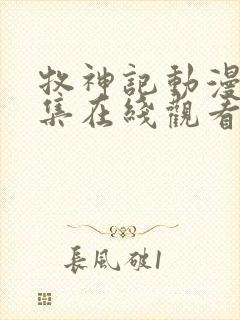 牧神記動漫
集在綫觀看
長風破1